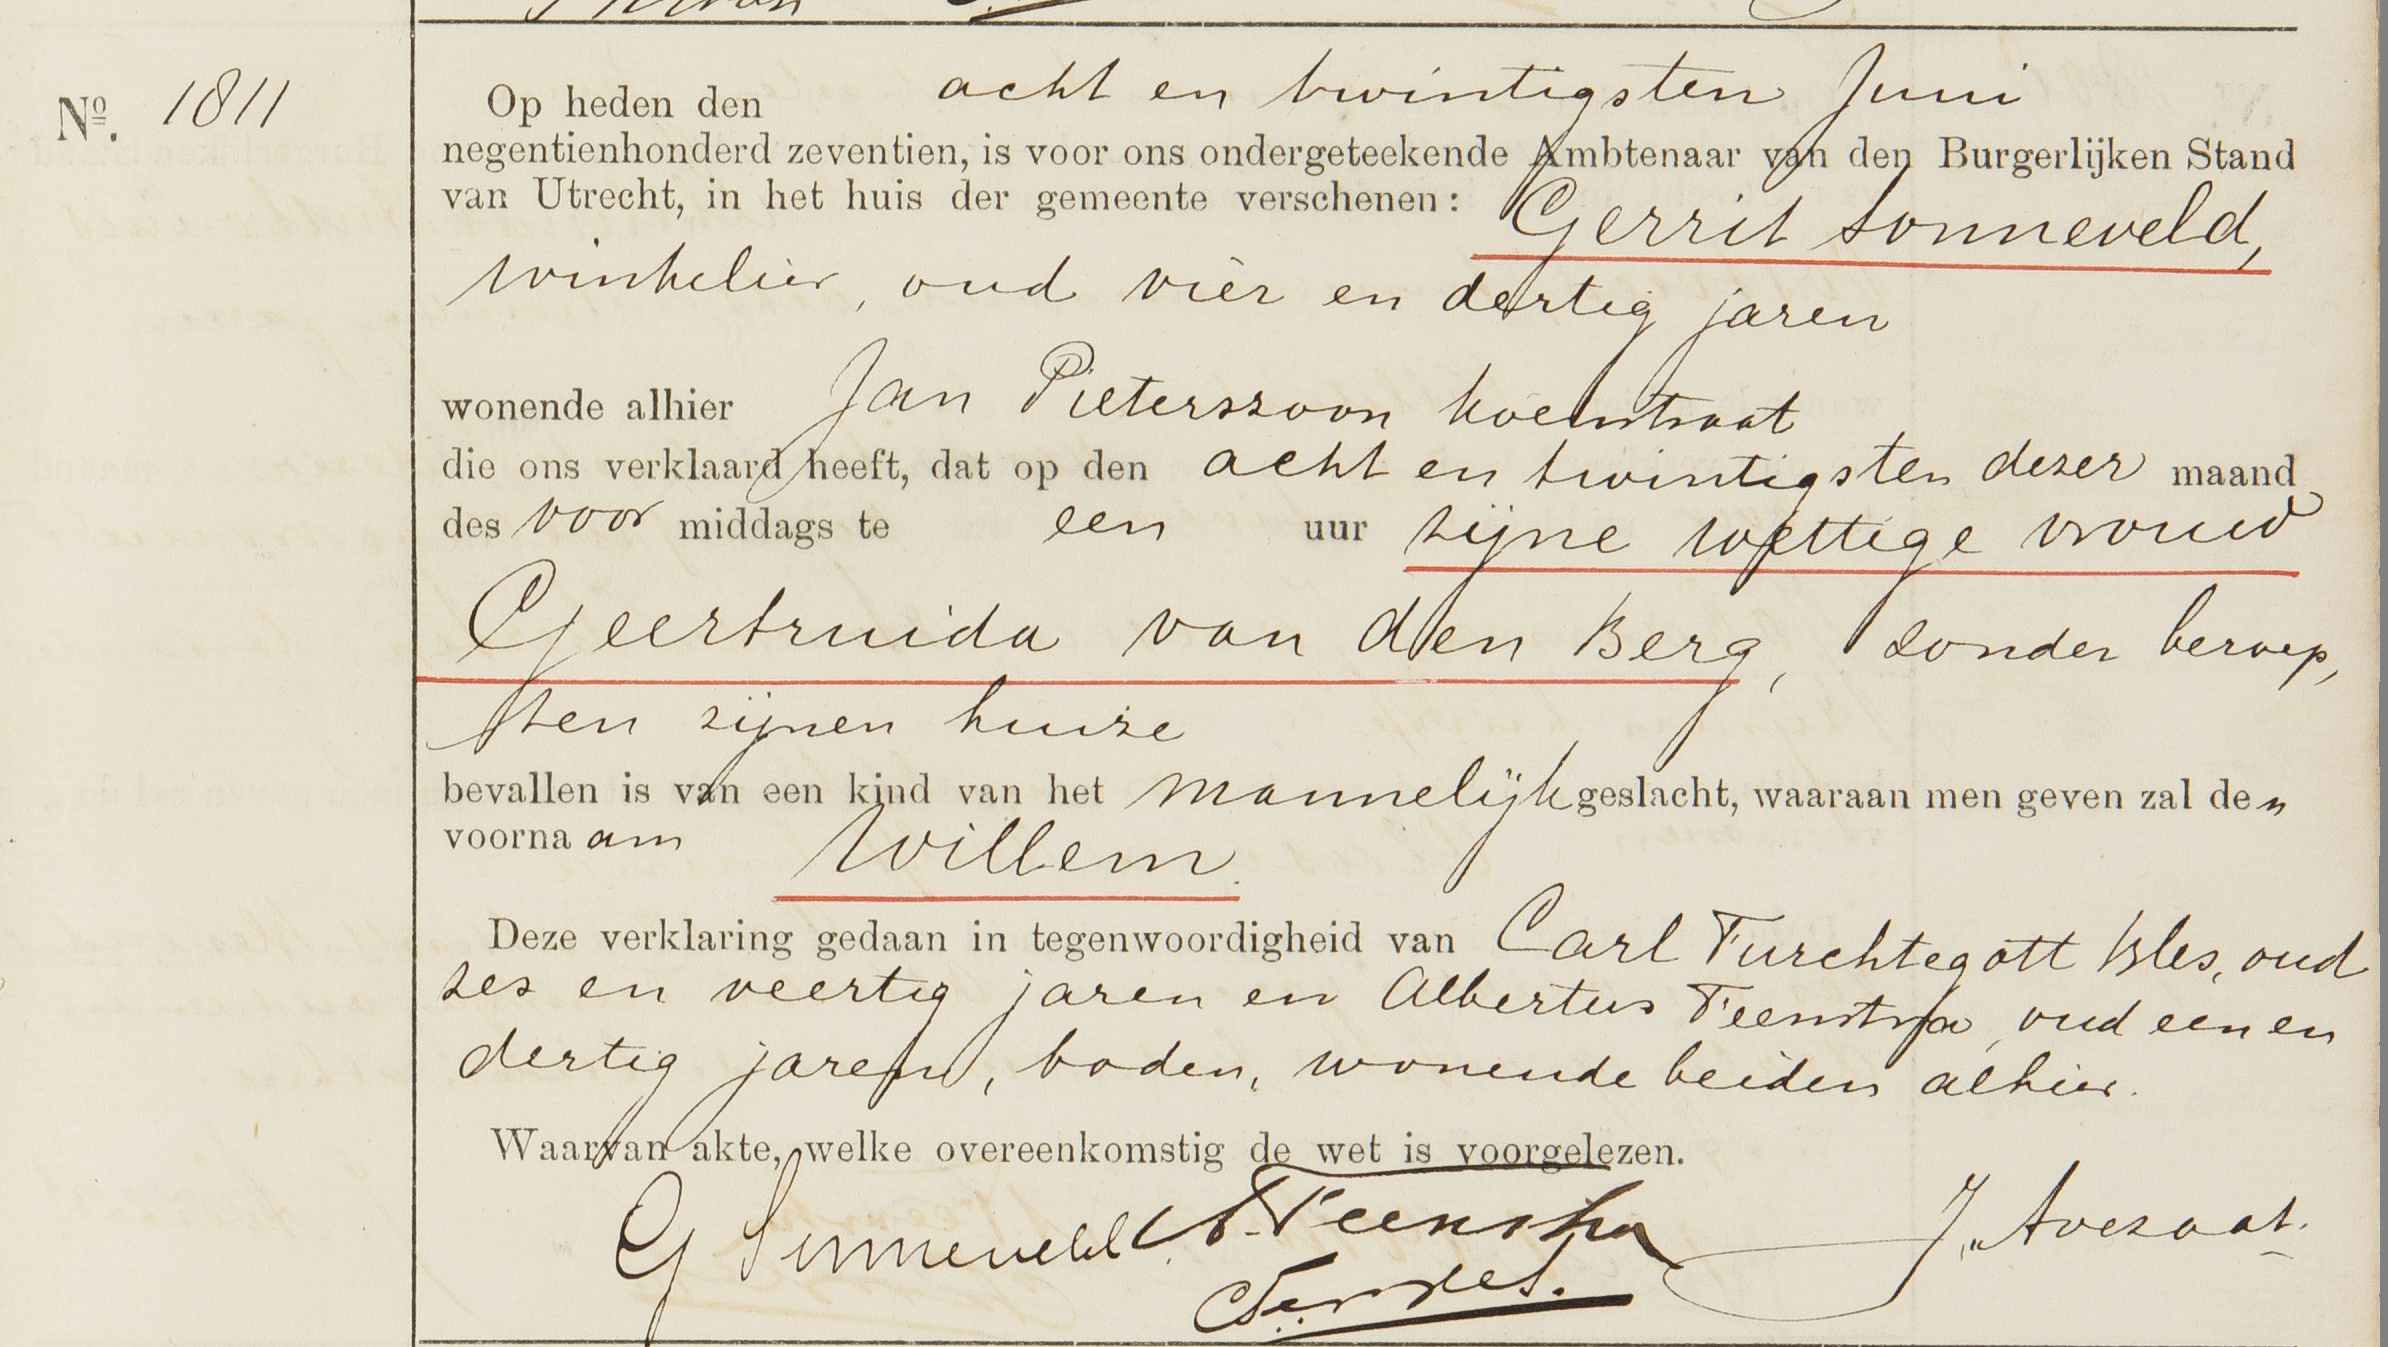 Nº. 1811
Op heden den acht en twintigsten Juni
negentienhonderd zeventien, is voor ons ondergeteekende Ambtenaar van den Burgerlijken Stand
van Utrecht, in het huis der gemeente verschenen: Gerrit Sonneveld,
winkelier, oud vier en dertig jaren
wonende alhier Jan Pieterszoon Koenstraat
die ons verklaard heeft, dat op den acht en twintigsten dezer maand
des voor middags te een uur zijne wettige vrouw
Geertruida van den Berg, zonder beroep,
ten zijnen huize
bevallen is van een kind van het mannelijk geslacht, waaraan men geven zal den
voornaam Willem.
Deze verklaring gedaan in tegenwoordigheid van Carl Furchtegott Bles, oud
zes en veertig jaren en Albertus Feenstra, oud een en
dertig jaren, boden, wonende beiden alhier.
Waarvan akte, welke overeenkomstig de wet is voorgelezen.
G Sonneveld A. Feenstra J. Avezaat.